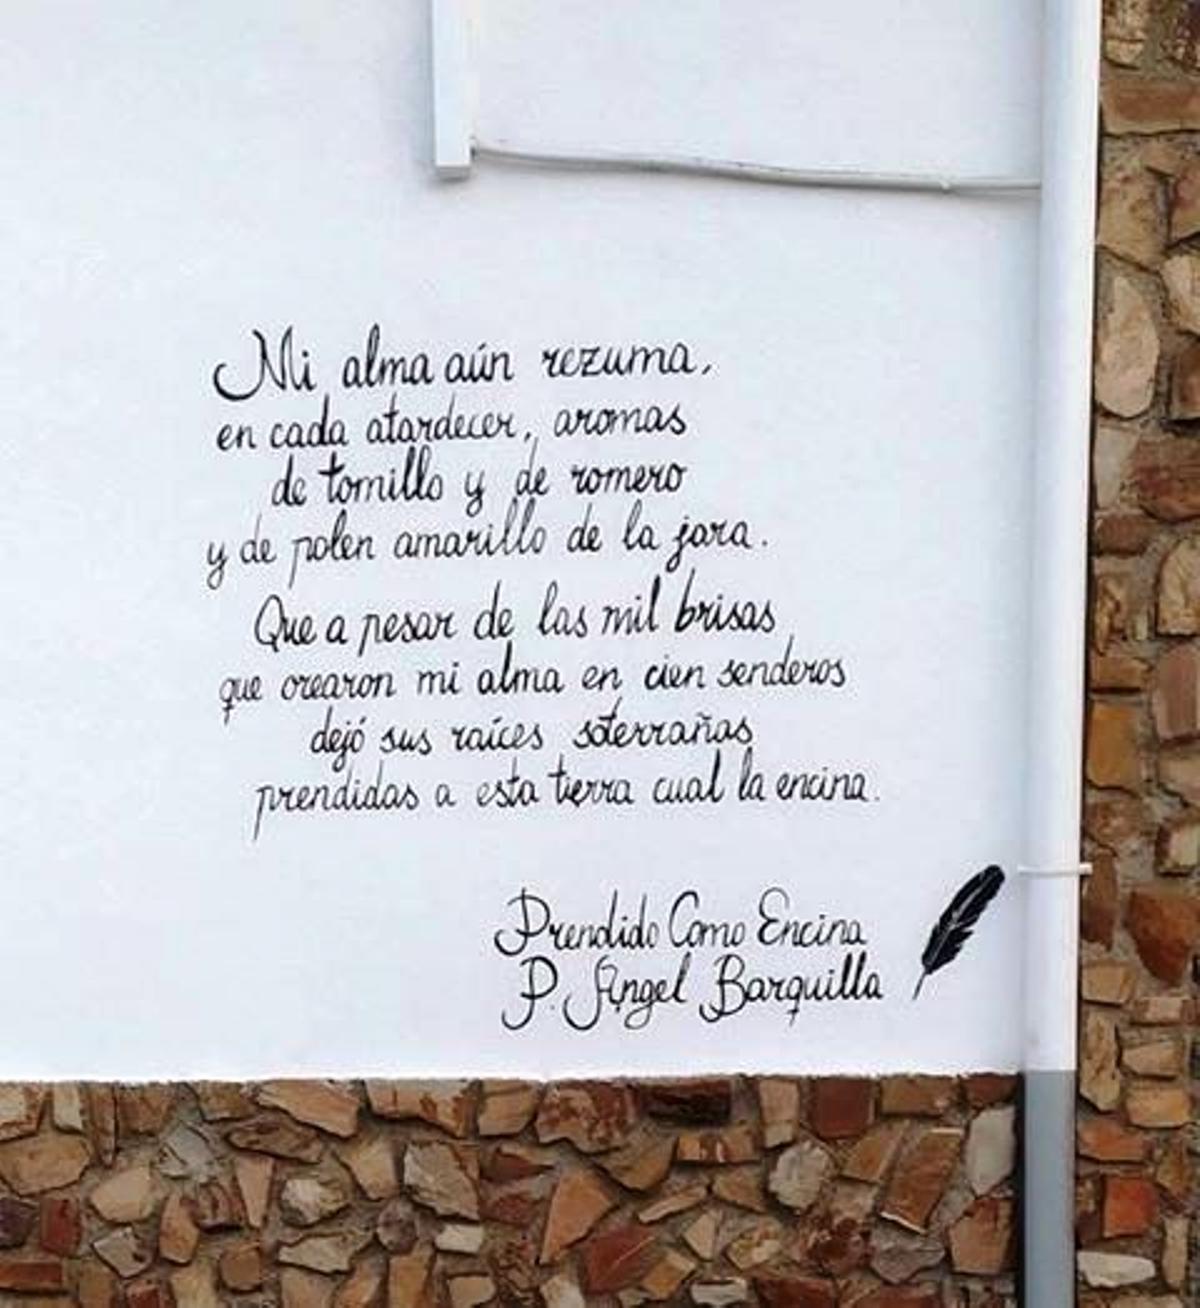 Mi alma aún rezuma,
en cada atardecer, aromas
de tomillo y de romero
y de polen amarillo de la jara.
Que a pesar de las mil brisas
que orearon mi alma en cien senderos
dejó sus raíces soterrañas
prendidas a esta tierra cual la encina.
Prendido Como Encina
P. Ángel Barquilla